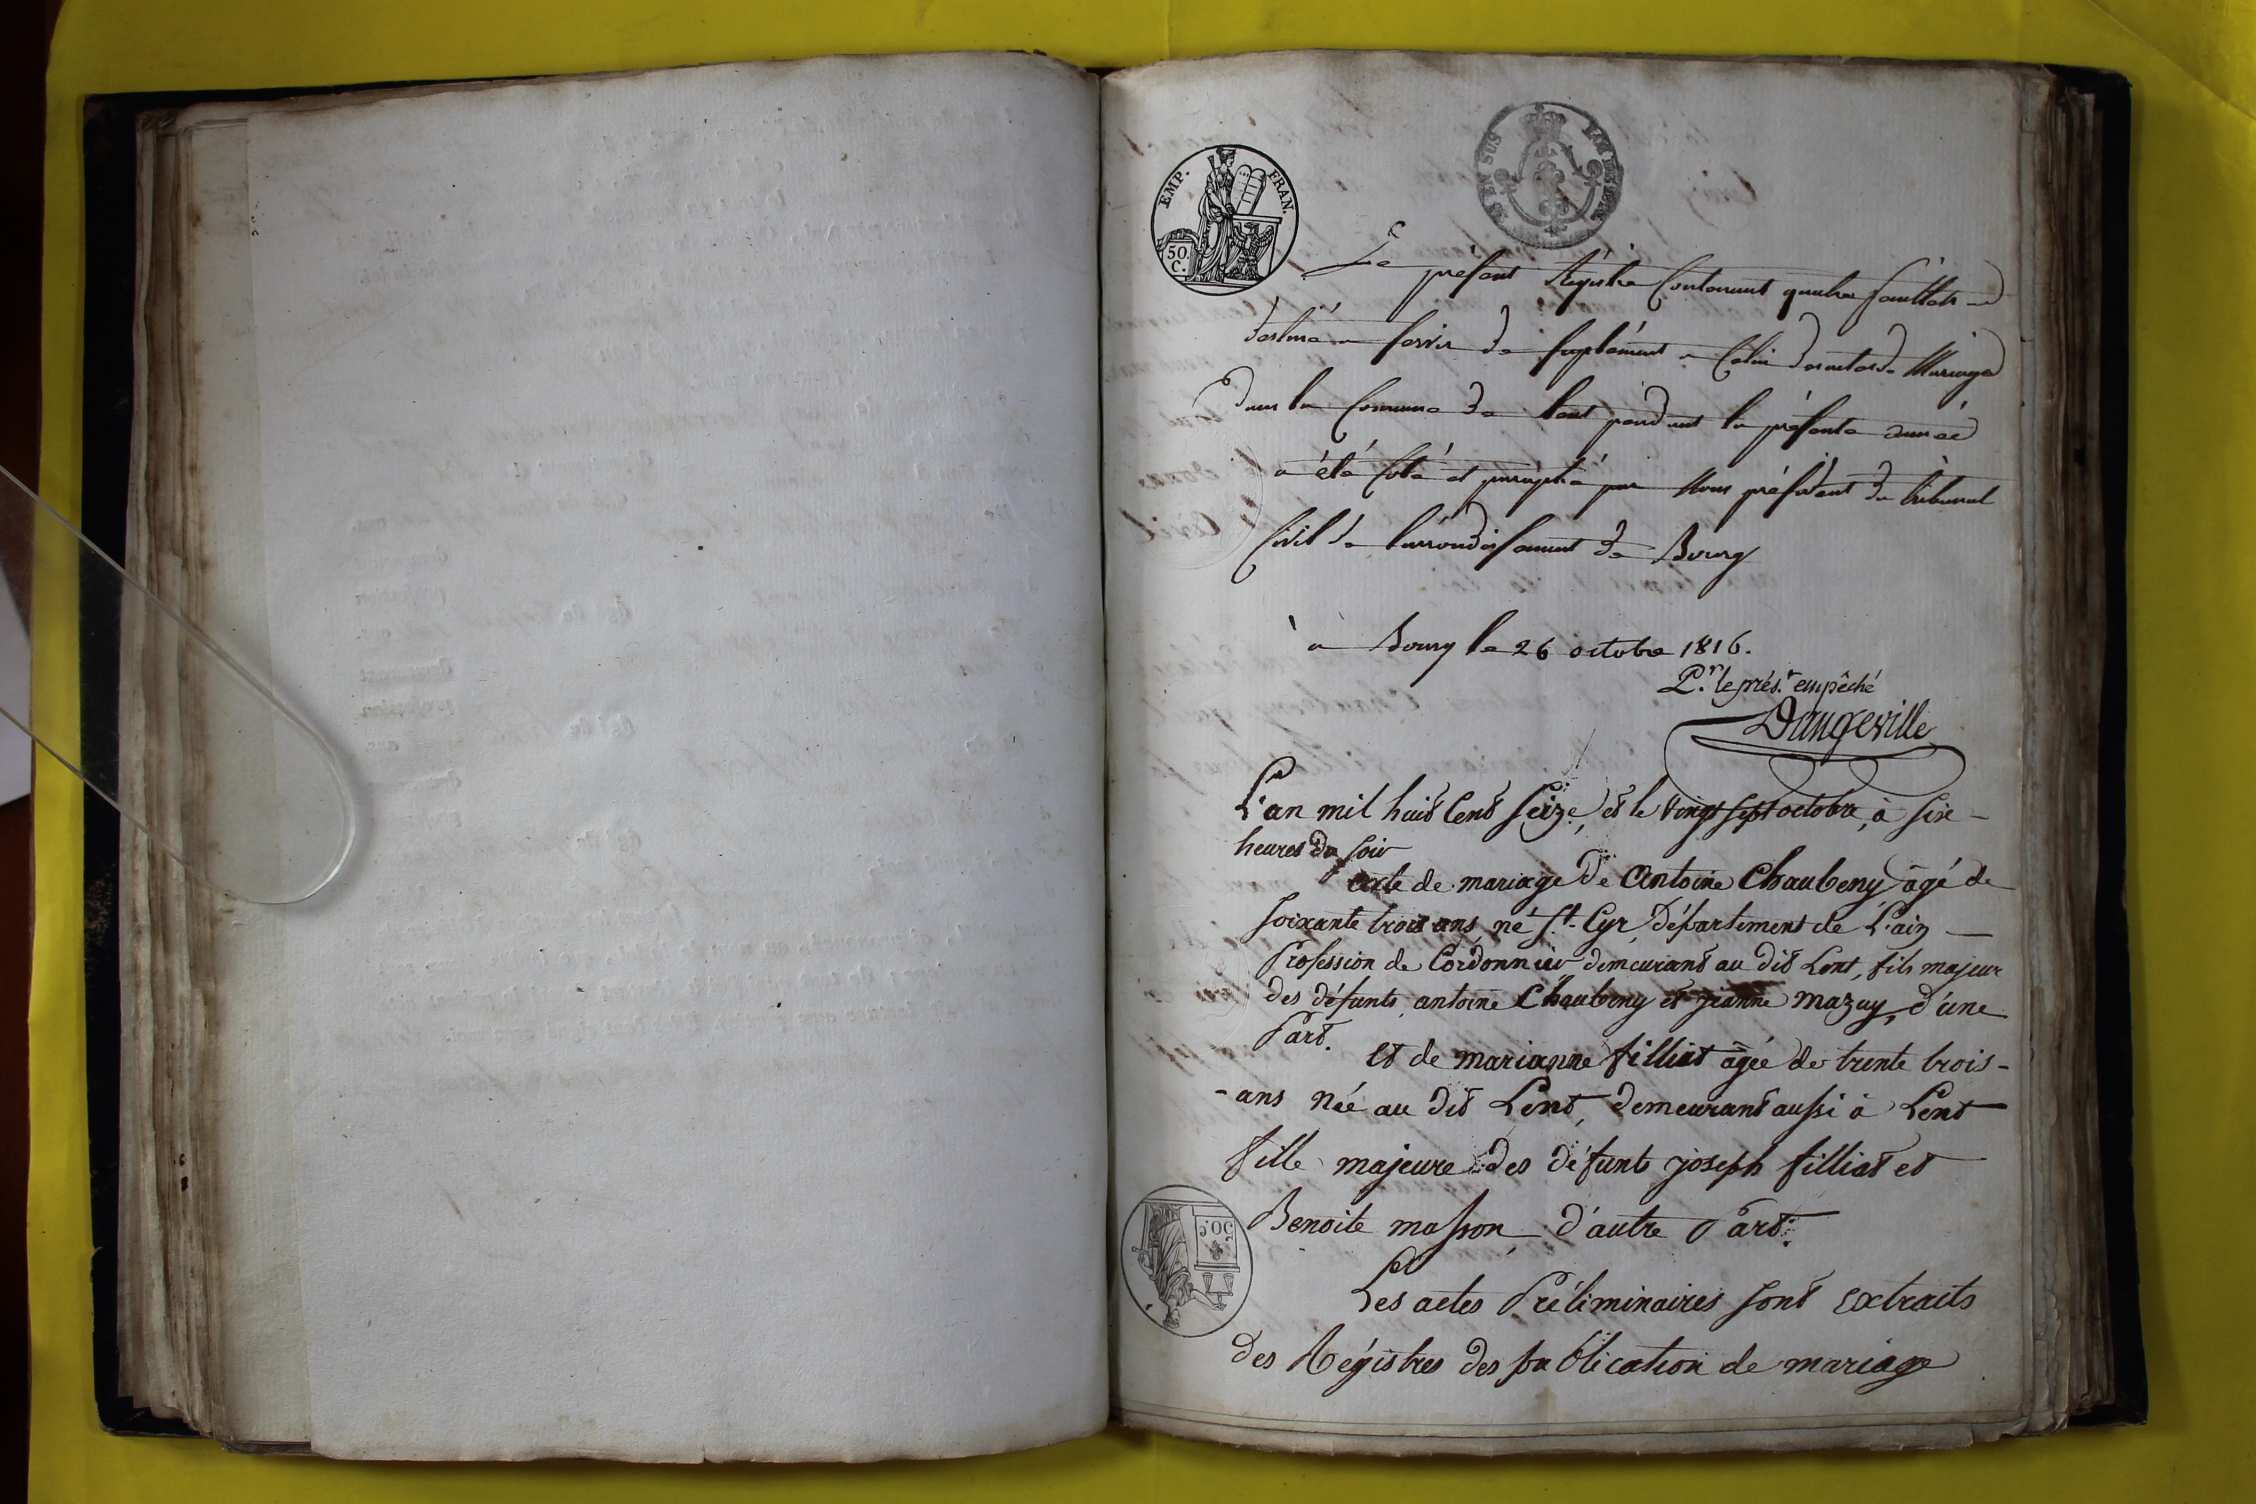 EMP. FRAN.
50. C.
EN SUS
Le présent Régistre Contenant quatre feuillets
destiné a servir de suplément a Celui des actes de Mariage
dans la Commune de Lent pendant la présente année
a été Coté et paraphé par Nous président du tribunal
Civil de l'arrondissement de Bourg
à Bourg le 26 octobre 1816.
Pr. le prés.t empêché
Dangeville
L'an mil huit Cent Seize, et le vingt sept octobre, à six
heures du soir
acte de mariage De Antoine Chaubeny âgé de
soixante trois ans né St. Cyr, Département de L'ain
Profession de Cordonnier demeurant au dit Lent, fils majeur
des défunts antoine Chaubeny et jeanne mazuy, d'une
Part.
Et de marianne filliat âgée de trente trois
ans Née au dit Lent, demeurant aussi à Lent
fille majeure des défunts joseph filliat et
Benoite masson d'autre Part.
Les actes Préliminaires sont Extraits
des Régistres des publication de mariage
50.C